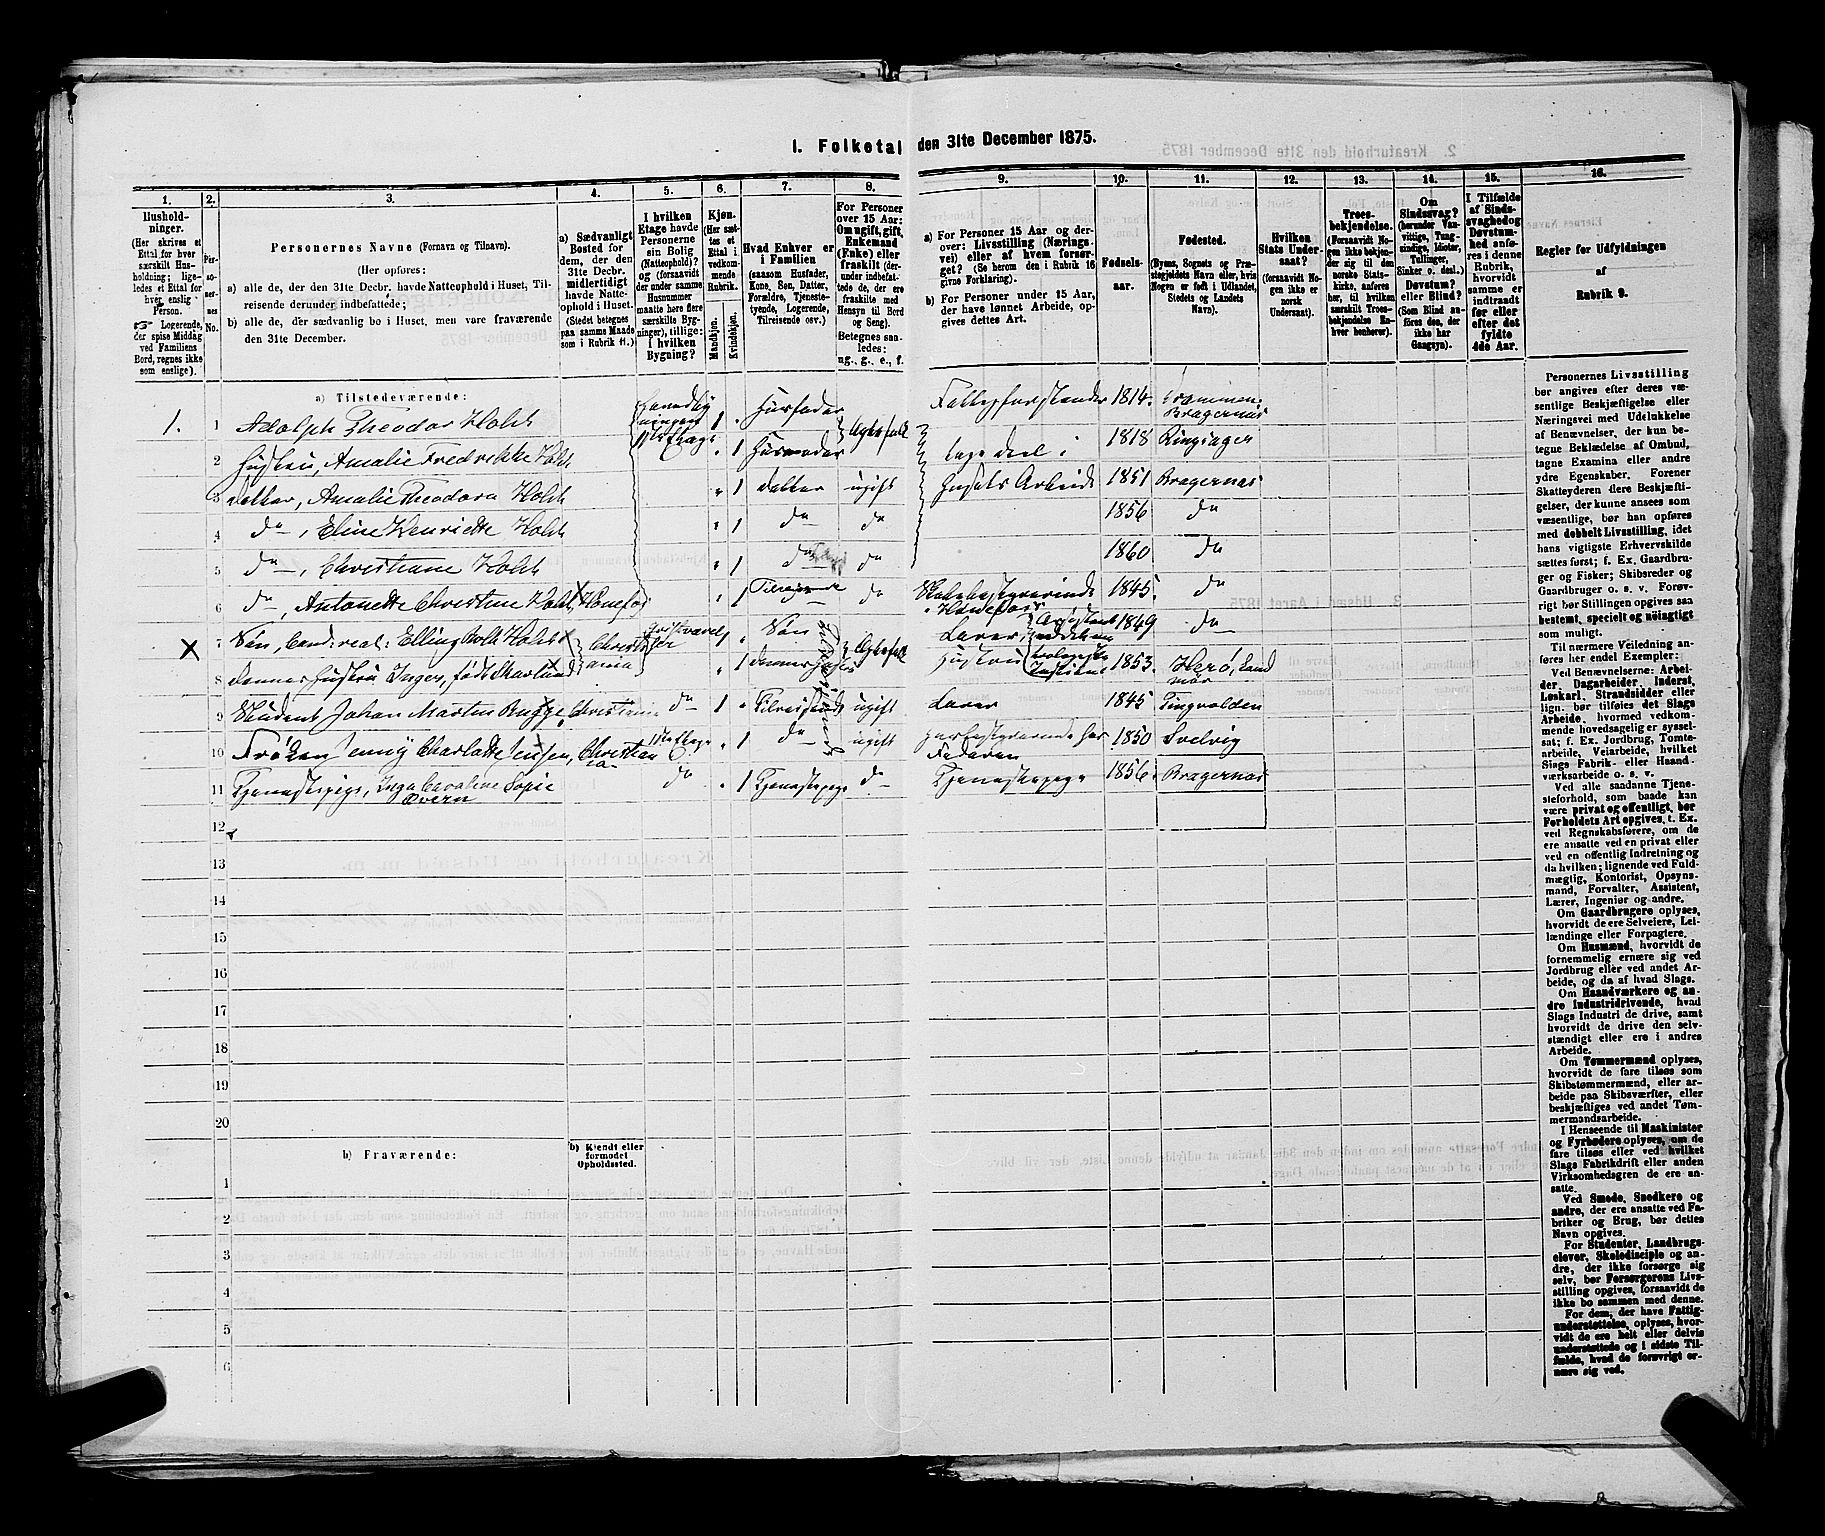 1. Folketal den 31te December 1875.
1.
2.
3.
4.
5.
6.
7.
8.
9.
10.
11.
12.
13.
14.
15.
16.
Hushold-
ninger.
(Her skrives et
Ettal for hver
særskilt Hus-
holdning; lige-
ledes et Ettal for
hver enslig
Person.
☞ Logerende,
der spise Middag
ved Familiens
Bord, regnes ikke
som enslige).
Per-
so-
ner-
nes
No.
Personernes Navne (Fornavn og Tilnavn).
(Her opføres:
a) alle de, der den 31te Decbr. havde Natteophold i Huset, Til-
reisende derunder indbefattede;
b) alle de, der sædvanlig bo i Huset, men vare fraværende
den 31te December.
a) Sædvanligt
Bosted for
dem, der den
31te Decbr.
midlertidigt
havde Natte-
ophold i Huset.
(Stedet betegnes
paa samme Maade
som i Rubrik 11.)
I hvilken
Etage havde
Personerne
sin Bolig
(Natteophold)?
og (forsaavidt
der under samme
Husnummer
maatte høre flere
særskilte Byg-
ninger), tillige:
i hvilken
Bygning?
Kjøn.
(Her sæt-
tes et
Ettal i
vedkom-
mende
Rubrik.
Mandkjøn.
Kvindekjøn.
Hvad Enhver er
i Familien
(saasom Husfader,
Kone, Søn, Datter,
Forældre, Tjeneste-
tyende, Logerende,
Tilreisende osv.)
For Personer
over 15 Aar:
Om ugift, gift,
Enkemand
(Enke) eller
fraskilt (der-
under indbefat-
tede de, der ere
fraskilte med
Hensyn til Bord
og Seng).
Betegnes saa-
ledes:
ug., g., e., f.
a) For Personer 15 Aar og der-
over: Livsstilling (Nærings-
vei) eller af hvem forsør-
get? (Se herom den i Rubrik 16
givne Forklaring).
b) For Personer under 15 Aar,
der have lønnet Arbeide, op-
gives dettes Art.
Fødsels-
aar.
Fødested.
(Byens, Sognets og Præ-
stegjeldets Navn eller, hvis
Nogen er født i Udlandet,
Stedets og Landets
Navn).
Hvilken
Stats Under-
saat?
(forsaavidt No-
gen ikke er
norsk
Undersaat).
Troes-
bekjendelse.
(Forsaavidt No-
gen ikke bekjen-
der sig til den
norske Stats-
kirke, anføres
her, til hvilken
særskilt Troes-
bekjendelse En-
hver henhører).
Om
Sindssvag?
(herunder Van-
vittige, Tung-
sindige, Idioter,
Tullinger,
Sinker o. desl.)
Døvstum?
eller Blind?
(Som Blind an-
føres den, der
ikke har
Gangsyn).
I Tilfælde
af Sinds-
svaghed og
Døvstum-
hed anfø-
res i denne
Rubrik,
hvorvidt
samme er
indtraadt
før eller
efter det
fyldte
4de Aar.
Regler for Udfyldningen
af
Rubrik 9.
a) Tilstedeværende:
1. 1 Adolph Theodor Holst 1 Husfader 1814. Drammen, Bragernæs
2 Hustru, Amalie Fredrikke Holst 1 Husmoder Ægtefolk tage deel i 1818 Ringsager
3 datter, Amalie Theodora Holst 1 datter ugift Husets Arbeide 1851 Bragernæs
4 do, Eline Henriette Holst 1 do do 1856 do
5 do, Christiane Holst 1 do do 1860 do
6 do, Antonette Christine Holst, Hønefos 1 Tilreisende do Skolebestyrerinde i Hønefoss 1845. do
7 Søn, Cand: real: Elling Bolt Holst Christiania Søn Ægtefolk Lærer 1849 do
8 dennes Hustru Inger, født 1 dennes Hustru Hustru 1853. Herø, Sønd mør
9 Student Johan Martin Bugge, Christiania do 1 Tilreisende ugift Lærer 1845 Tingvolden
10 Frøken Jenny Charlotte Jensen, Christiania 1ste Etage 1 do ugift Faderen 1850 Svelvig
11 Tjenestepige, Inga Caroline Sofie Overn do 1 Tjenestepige do Tjenestepige 1856. Bragernæs
12
13
14
15
16
17
18
19
20
b) Fraværende:
b) Kjendt eller
formodet
Opholdssted.
1
2
3
4
5
6
Personernes Livsstilling
bør angives efter deres væ-
sentlige Beskjæftigelse eller
Næringsvei med Udelukkelse
af Benævnelser, der kun be-
tegne Beklædelse af Ombud,
tagne Examina eller andre
ydre Egenskaber. Forener
Skatteyderen flere Beskjæfti-
gelser, der kunne ansees som
væsentlige, bør han opføres
med dobbelt Livsstilling, idet
hans vigtigste Erhvervskilde
sættes først; f. Ex. Gaardbru-
ger og Fisker; Skibsreder og
Gaardbruger o. s. v. Forøv-
rigt bør Stillingen opgives saa
bestemt, specielt og nøiagtigt
som muligt.
Til nærmere Veiledning an-
føres her endel Exempler:
Ved Benævnelserne: Arbei-
der, Dagarbeider, Inderst,
Løskarl, Strandsidder eller
lign. bør tilføies det Slags
Arbeide, hvormed vedkom-
mende hovedsagelig er syssel-
sat; f. Ex. Jordbrug, Tomte-
arbeide, Veiarbeide, hvilket
Slags Fabrik- eller Haand-
værksarbeide o. s. v.
Ved alle saadanne Tjene-
steforhold, som baade kan
være privat og offentligt, bør
Forholdets Art opgives, t. Ex.
ved Regnskabsførere, om de
ere ansatte ved en privat eller
ved en offentlig Indretning og
da hvilken; lignende ved Fuld-
mægtig, Kontorist, Opsyns-
mand, Forvalter, Assistent,
Lærer, Ingeniør og andre.
Om Gaardbrugere oplyses,
hvorvidt de ere Selveiere, Lei-
lændinge eller Forpagtere.
Om Husmænd, hvorvidt de
fornemmelig ernære sig ved
Jordbrug eller ved andet Ar-
beide, og da af hvad Slags.
Om Haandværkere og an-
dre Industridrivende, hvad
Slags Industri de drive, samt
hvorvidt de drive den selv-
stændigt eller ere i andres
Arbeide.
Om Tømmermænd oplyses,
hvorvidt de fare tilsøs som
Skibstømmermænd, eller ar-
beide paa Skibsværfter, eller
beskjæftiges ved andet Tøm-
mermandsarbeide.
I Henseende til Maskinister
og Fyrbødere oplyses, om de
fare tilsøs eller ved hvilket
Slags Fabrikdrift eller anden
Virksomhedsgren de ere an-
satte.
Ved Smede, Snedkere og
andre, der ere ansatte ved Fa-
briker og Brug, bør dettes
Navn opgives.
For Studenter, Landbrugs-
elever, Skoledisciple og an-
dre, der ikke forsørge sig
selv, bør Forsørgerens Livs-
stilling opgives, forsaavidt de
ikke bo sammen med denne.
For dem, der have Fattig-
understøttelse, oplyses, hvor-
vidt de ere helt eller delvis
understøttede og i sidste Til-
fælde, hvad de forøvrigt er-
nære sig ved.